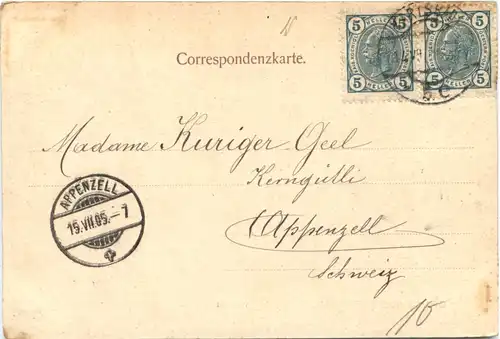 Correspondenzkarte.
5 5
HELLER
5 5
5 5
HELLER
5 5
Madame Kuriger-Geel
Kerngütli
Appenzell
Schweiz
APPENZELL
15.VII.05.-7
10